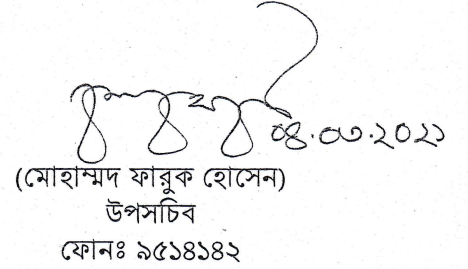 ০৪.০৩.২০২১
(মোহাম্মদ ফারুক হোসেন)
উপসচিব
ফোনঃ ৯৫১৪১৪২